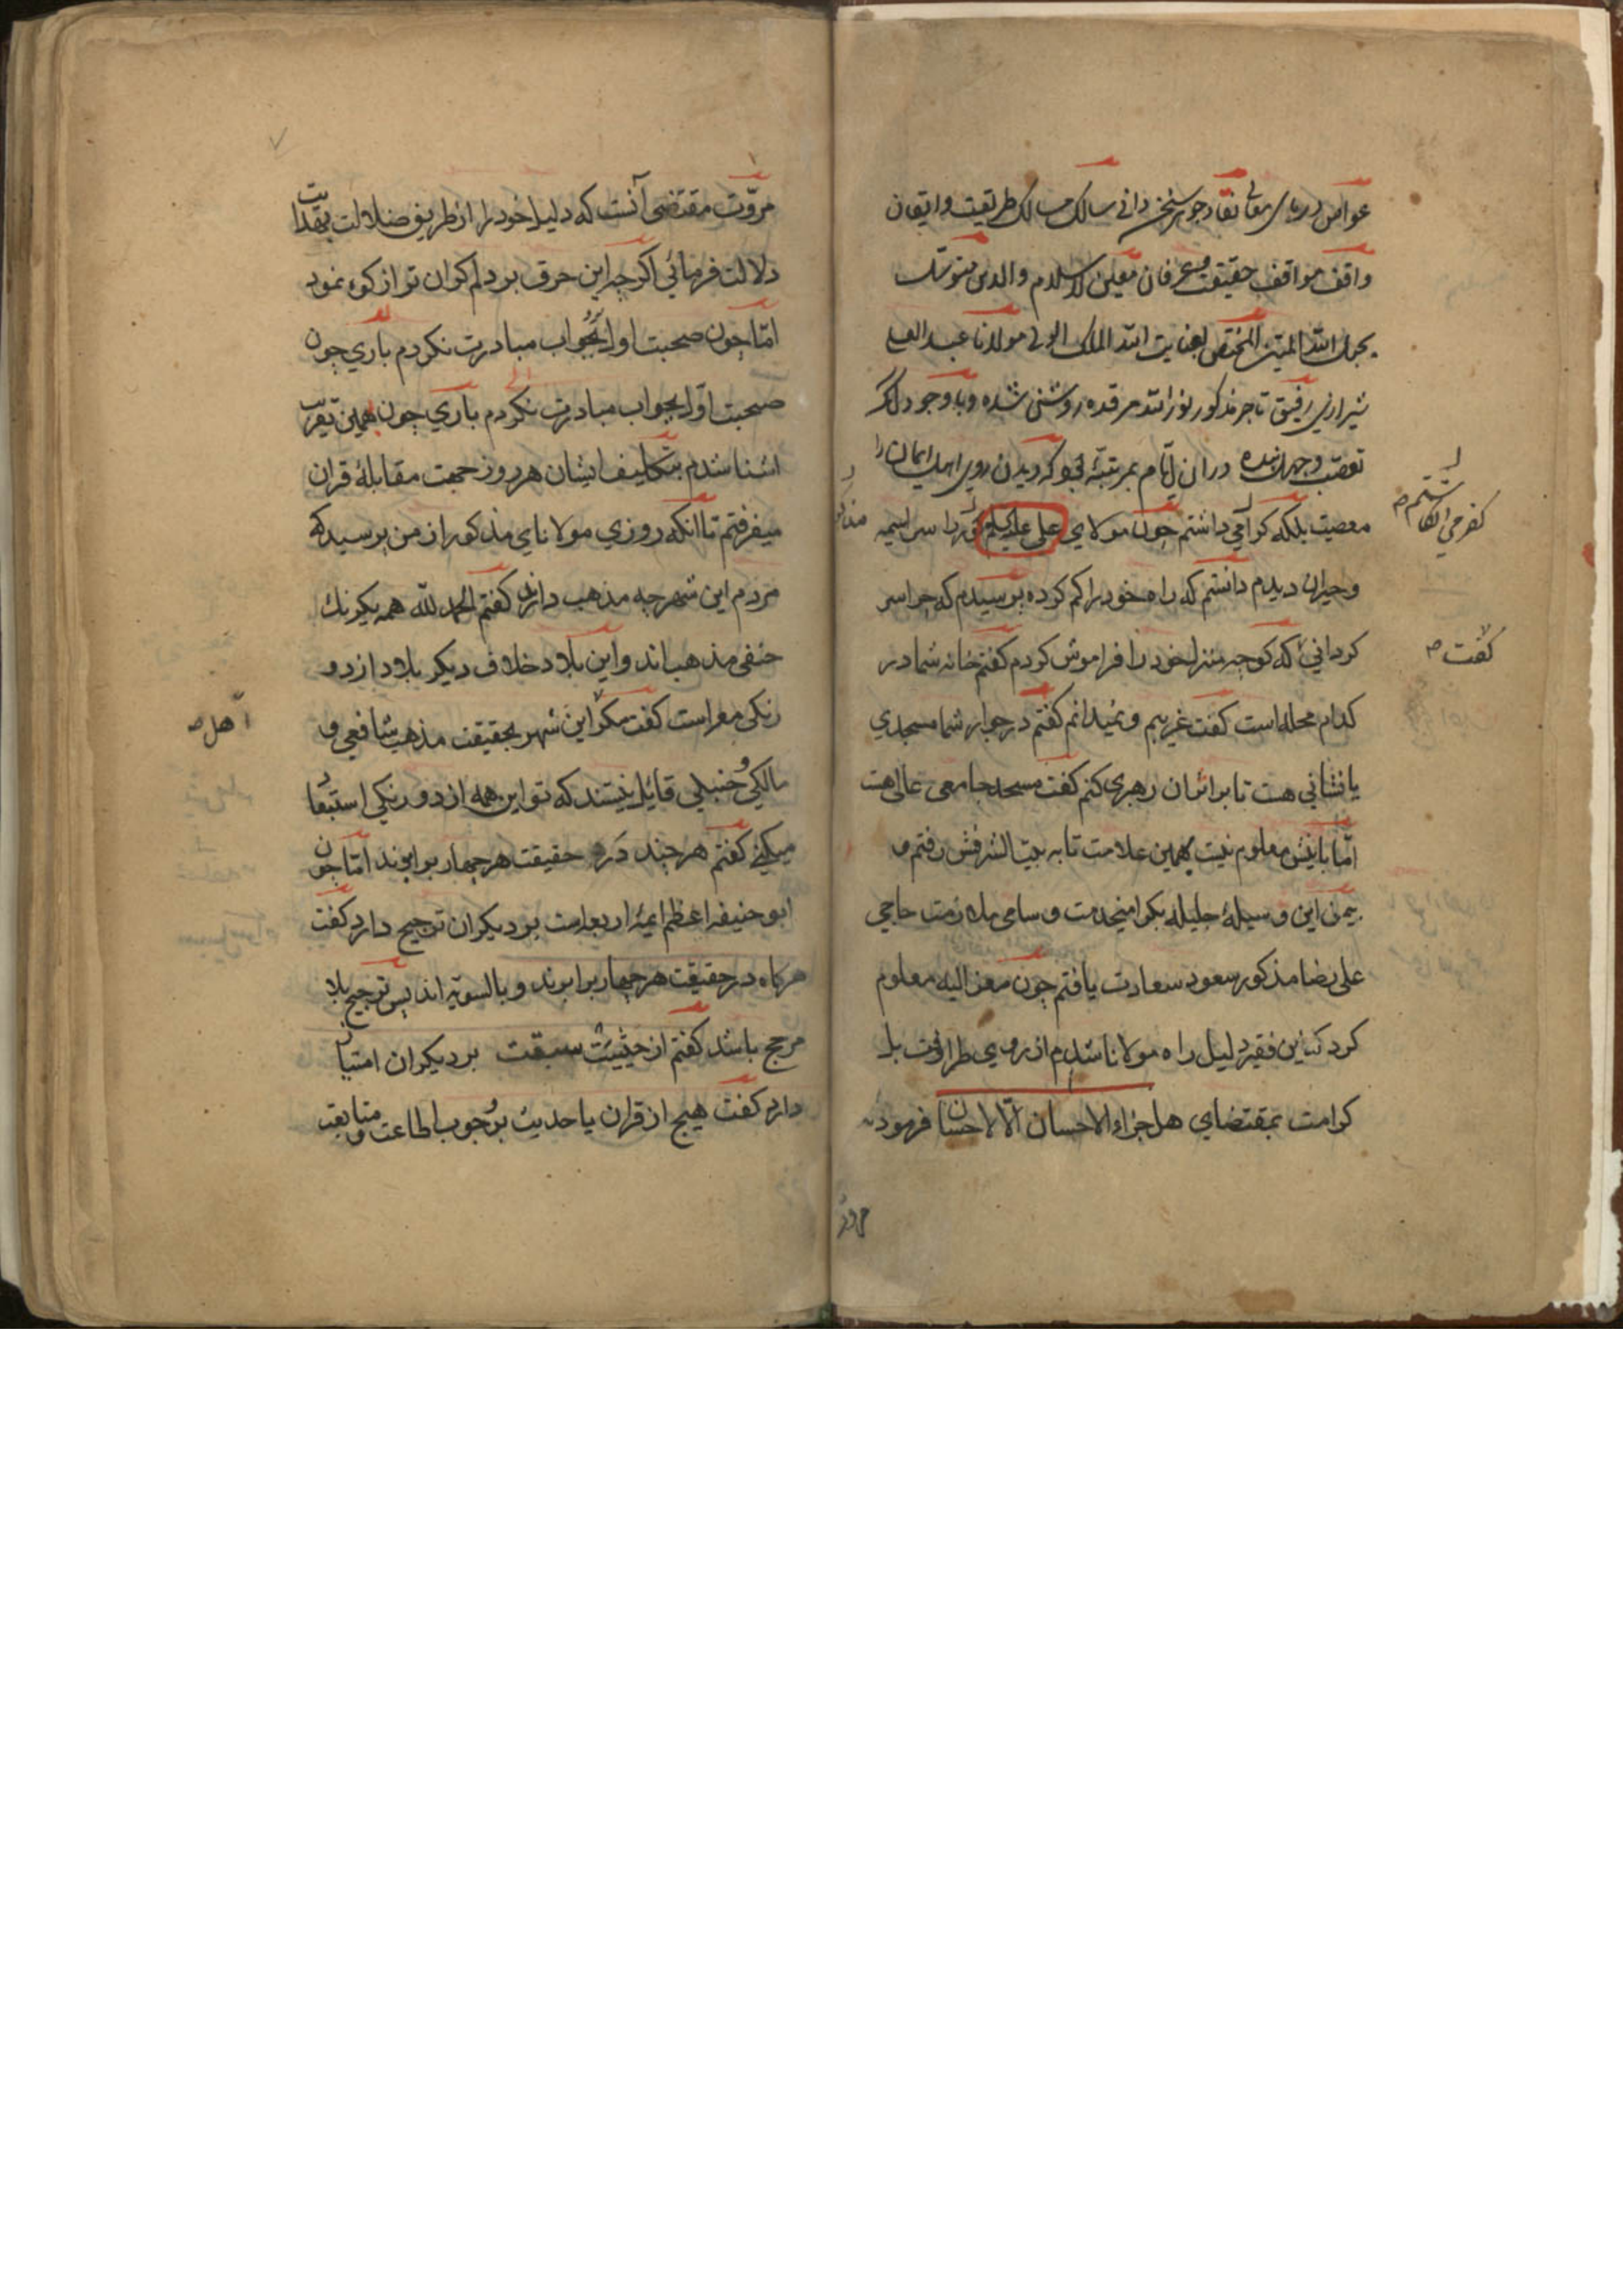 غواص دریای معانی نقاد جوهر سخن دانی سالک مسالک طریقت و ایقان
واقف مواقف حقیقت و عرفان معین الاسلام والدین متوسک
بحبل الله المتین المختص بعنایت الله الملک الولی مولانا عبد العلی
شیرازی رفیق تاجر مذکور نور الله مرقده روشنی شده و با وجود آنکه
تعصب و جهل بنده در آن ایام بمرتبهٔ بود که دیدن روی اهل ایمان را
معصیت بلکه کرامی داشتم چون مولای علی علیه السلم را سراسیمه
کفر می انکاشتم ص
مذکور
و حیران دیدم دانستم که راه خود را کم کرده پرسیدم که چرا سر
کردانی که کوچه منزل خود را فراموش کردم کفتم خانه شما در
کفت ص
کدام محله است کفت غریبم و نمیدانم کفتم در جوار شما مسجدی
یا نشانی هست تا بر اثر آن رهبری کنم کفت مسجد جامعی عالی هست
اما بانیش معلوم نیست بهمین علامت تا به بیت الشرفش رفتم و
بیمن این وسیلهٔ جلیله بکرامیخدمت و سامی ملازمت حاجی
علی رضا مذکور سعود سعادت یافتم چون معز الیه معلوم
کرد که این فقیر دلیل راه مولانا شدم از روی ظرافت بل
کرامت بمقتضای هل جزاء الاحسان الا الاحسان فرمود که
مروت
مروّت مقتضی آنست که دلیل خود را از طریق ضلالت بهدایت
دلالت فرمائی اکرچه این حرف بر دلم کران تر از کوه نمود
امّا چون صحبت اول بجواب مبادرت نکردم باری چون
صحبت اوّل بجواب مبادرت نکردم باری چون همین تقریب
اشنا شدم بتکلیف ایشان هر روز جهت مقابلهٔ قران
میفرفتم تا انکه روزی مولانای مذکور از من پرسید که
مردم این شهر چه مذهب دارند کفتم الحمد لله همه یکرنک
حنفی مذهب اند و این بلاد خلاف دیکر بلاد از دو
رنکی معراست کفت مکر این شهر بحقیقت مذهب شافعی و
اهل ص
مالکی و حنبلی قائل نیستند که تو این همه از دو رنکی استبعاد
میکنی کفتم هر چند در حقیقت هر چهار برابرند امّا چون
ابو حنیفه اعظم ایمهٔ اربعه است بر دیکران ترجیح دارد کفت
هرکاه در حقیقت هر چهار برابرند و بالسویّه اند پس ترجیح بلا
مرجح باشد کفتم از حیثیت سبقت بر دیکران امتیاز
دارد کفت هیچ از قران یا حدیث بر وجوب اطاعت و متابعت